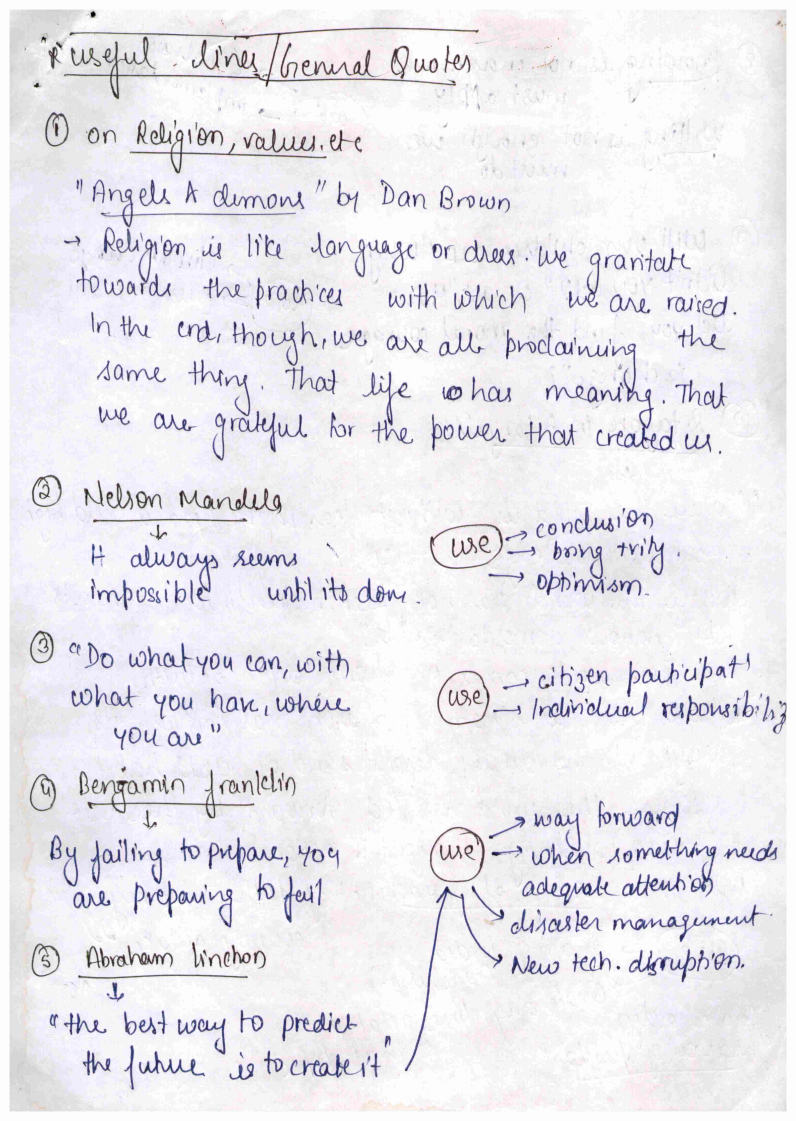 "R" useful lines/General Quotes
① on Religion, values, etc
"Angels & demons" by Dan Brown
→ Religion is like language or dress. we gravitate
towards the practices with which we are raised.
In the end, though, we are all proclaiming the
same thing. That life has meaning. That
we are grateful for the power that created us.
② Nelson Mandela
↓
It always seems
impossible until its done.
use → conclusion
→ bring +vity.
→ optimism.
③ "Do what you can, with
what you have, where
you are"
use → citizen participatn
→ Individual responsibility
④ Bengamin franklin
↓
By failing to prepare, you
are preparing to fail
use → way forward
→ when something needs
adequate attention
→ disaster management.
→ New tech. disruption.
⑤ Abraham linchon
↓
"the best way to predict
the future is to create it"